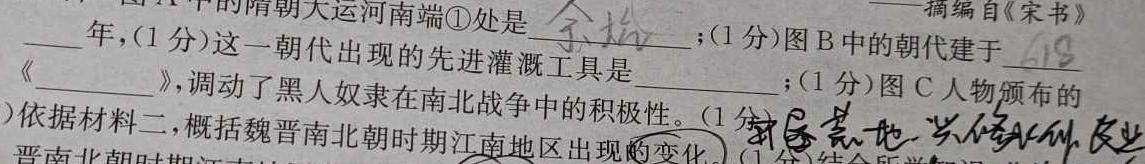 ——摘编自《宋书》
中的隋朝大运河南端①处是余杭;(1分)图B中的朝代建于618
年,(1分)这一朝代出现的先进灌溉工具是______;(1分)图C人物颁布的
《______》,调动了黑人奴隶在南北战争中的积极性。(1分
)依据材料二,概括魏晋南北朝时期江南地区出现的变化。(1分)结合所学
荒地
晋南北朝时期江南